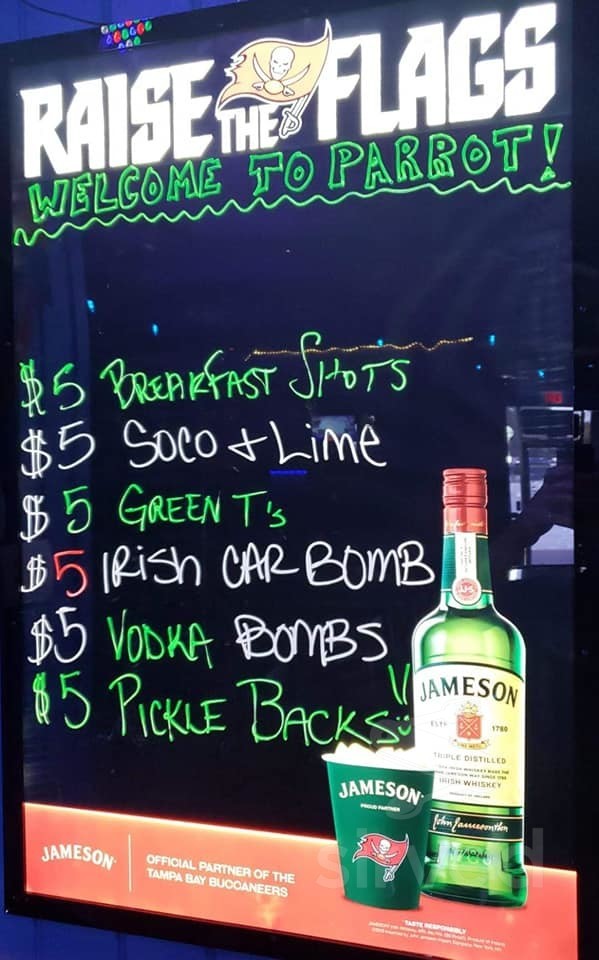 RAISE THE FLAGS
WELCOME TO PARROT!
$5 BREAKFAST SHOTS
$5 SOCO + LIME
$5 GREEN T's
$5 IRISH CAR BOMB
$5 VODKA BOMBS
$5 PICKLE BACKS!!
JAMESON
ESTD 1780
TRIPLE DISTILLED
IRISH WHISKEY
JAMESON
PROUD PARTNER
JAMESON
OFFICIAL PARTNER OF THE
TAMPA BAY BUCCANEERS
TASTE RESPONSIBLY